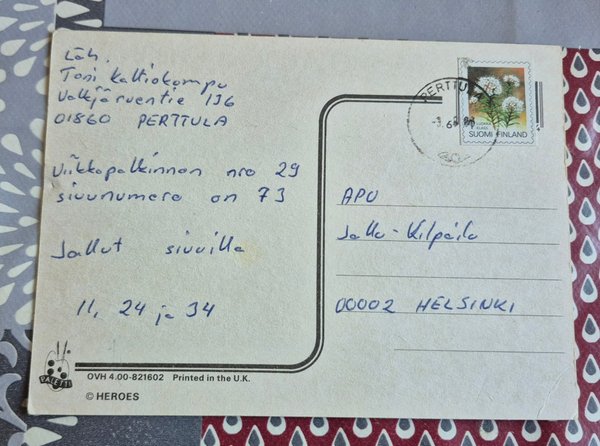 Läh.
Toni Kaltiokumpu
Valkjärventie 136
01860 PERTTULA
Viikkopalkinnon nro 29
sivunumero on 73
Jallut sivuilla
11, 24 ja 34
PERTTULA
SUOMI FINLAND
APU
Jallu-Kilpailu
00002 HELSINKI
PALETTI
OVH 4.00-821602 Printed in the U.K.
© HEROES